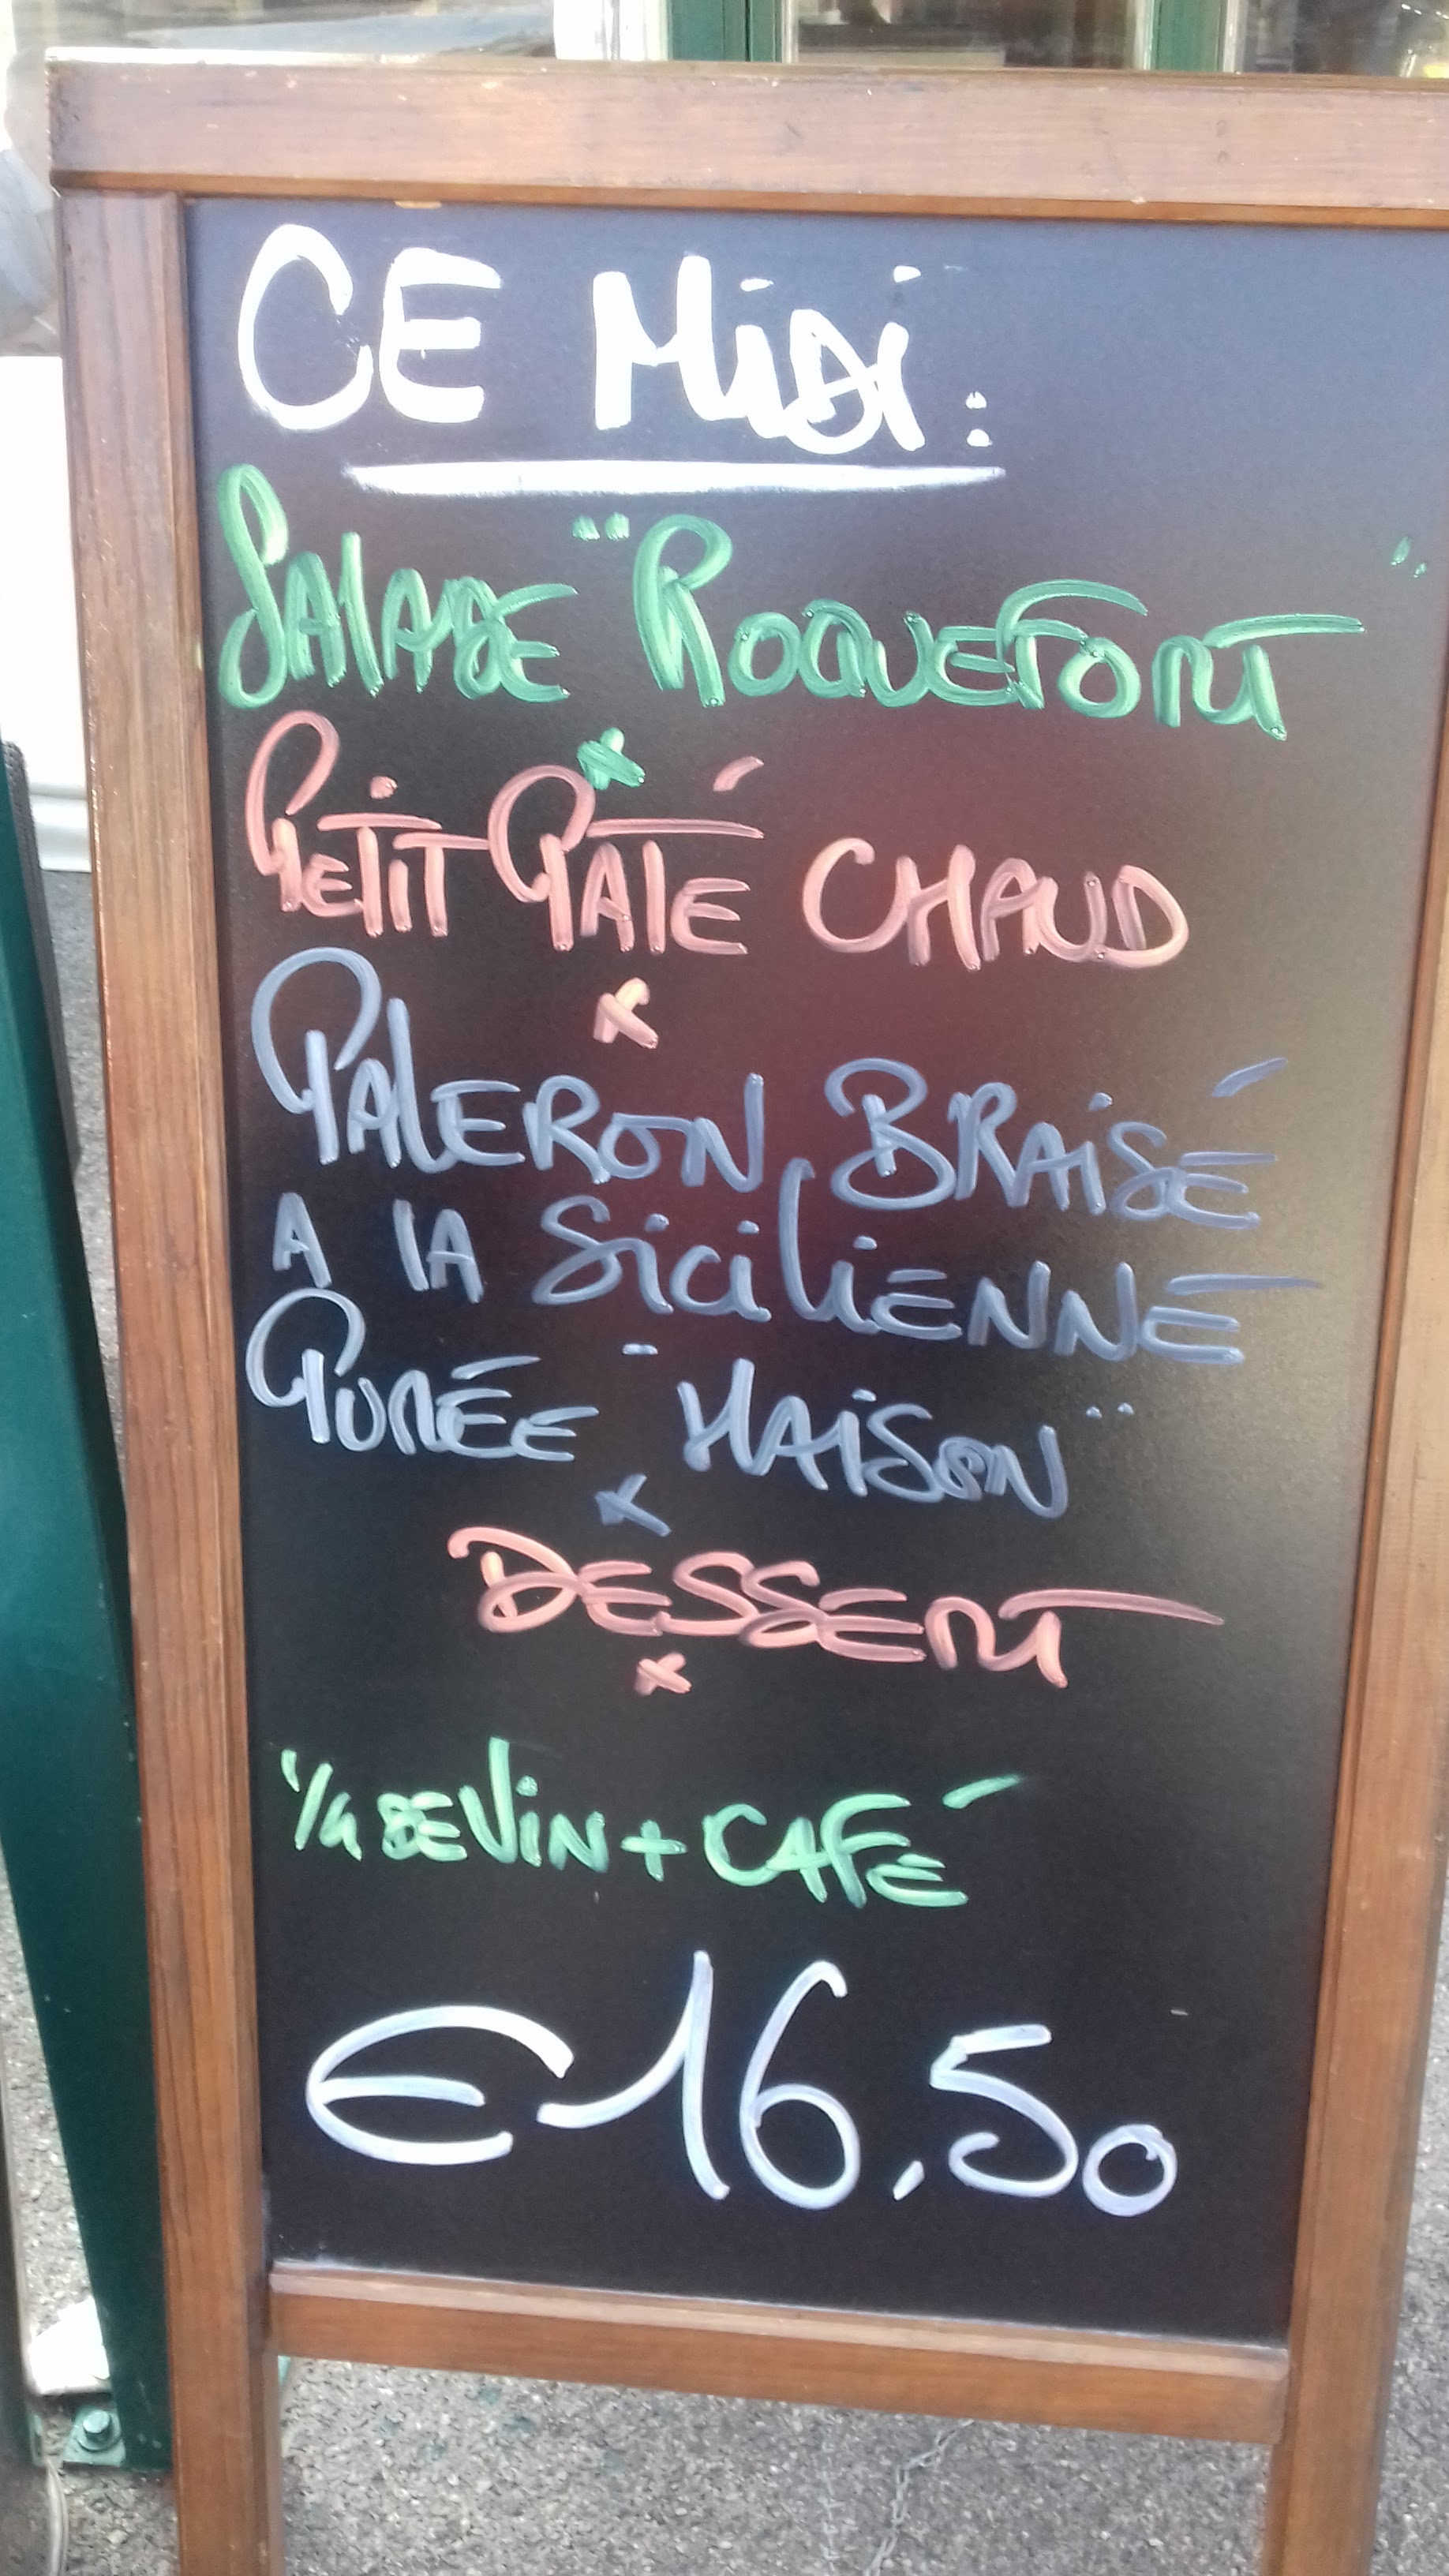 CE MiDi :
SALADE "ROQUEFORT"
x
PETiT PATÉ CHAUD
x
PALERON BRAiSÉ
A LA SiCiLiENNE
PURÉE "MAiSON"
x
DESSERT
x
1/4 DE ViN + CAFÉ
€16.50